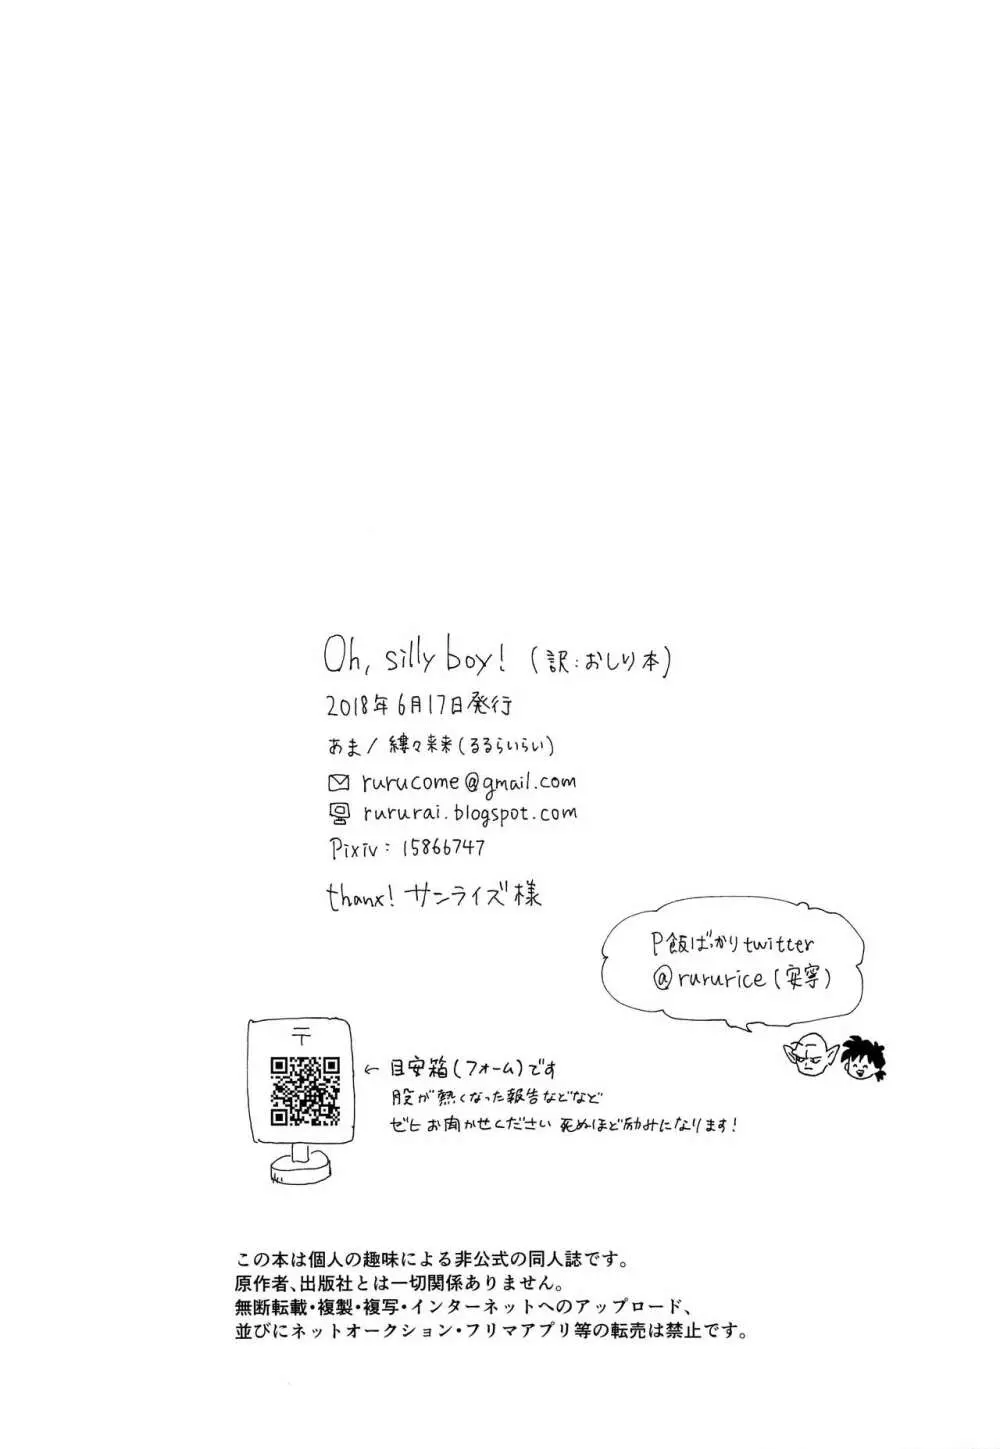 Oh, silly boy! (訳:おしり本)
2018年6月17日発行
あま/縷々来来(るるらいらい)
rurucome@gmail.com
rururai.blogspot.com
Pixiv: 15866747
thanx! サンライズ様
P飯ばっかりtwitter
@rururice(安寧)
〒
← 目安箱(フォーム)です
股が熱くなった報告などなど
ゼヒお聞かせください 死ぬほど励みになります!
この本は個人の趣味による非公式の同人誌です。
原作者、出版社とは一切関係ありません。
無断転載・複製・複写・インターネットへのアップロード、
並びにネットオークション・フリマアプリ等の転売は禁止です。